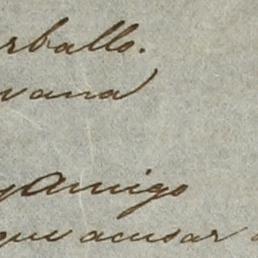 rballo.
vana
y Amigo
que acusar